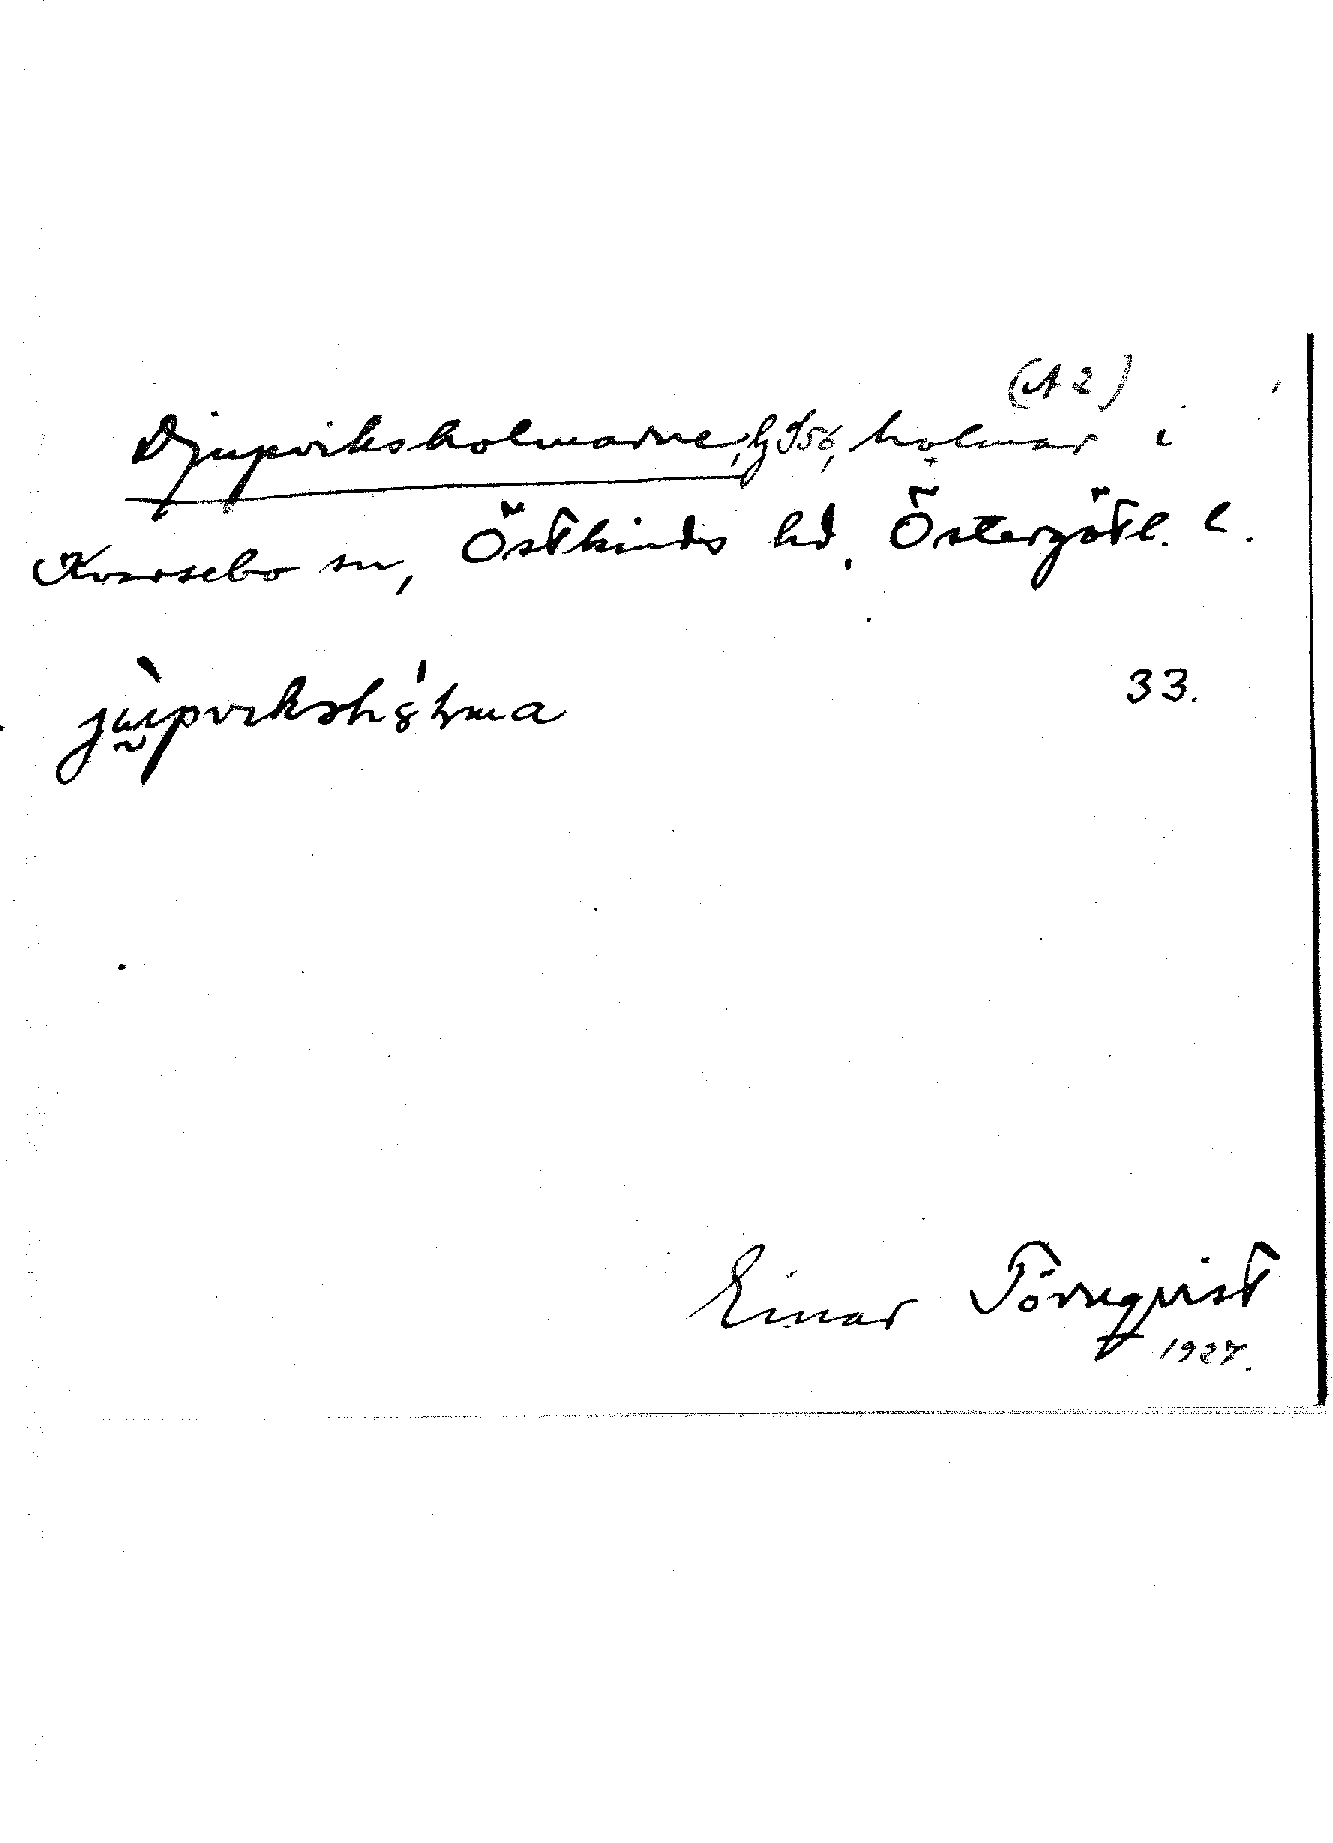 (A 2)
Djupviksholmarne, holmar i
Kvarsebo sn, Östkinds hd. Östergötl. l.
33.
Einar Törnqvist
1927.